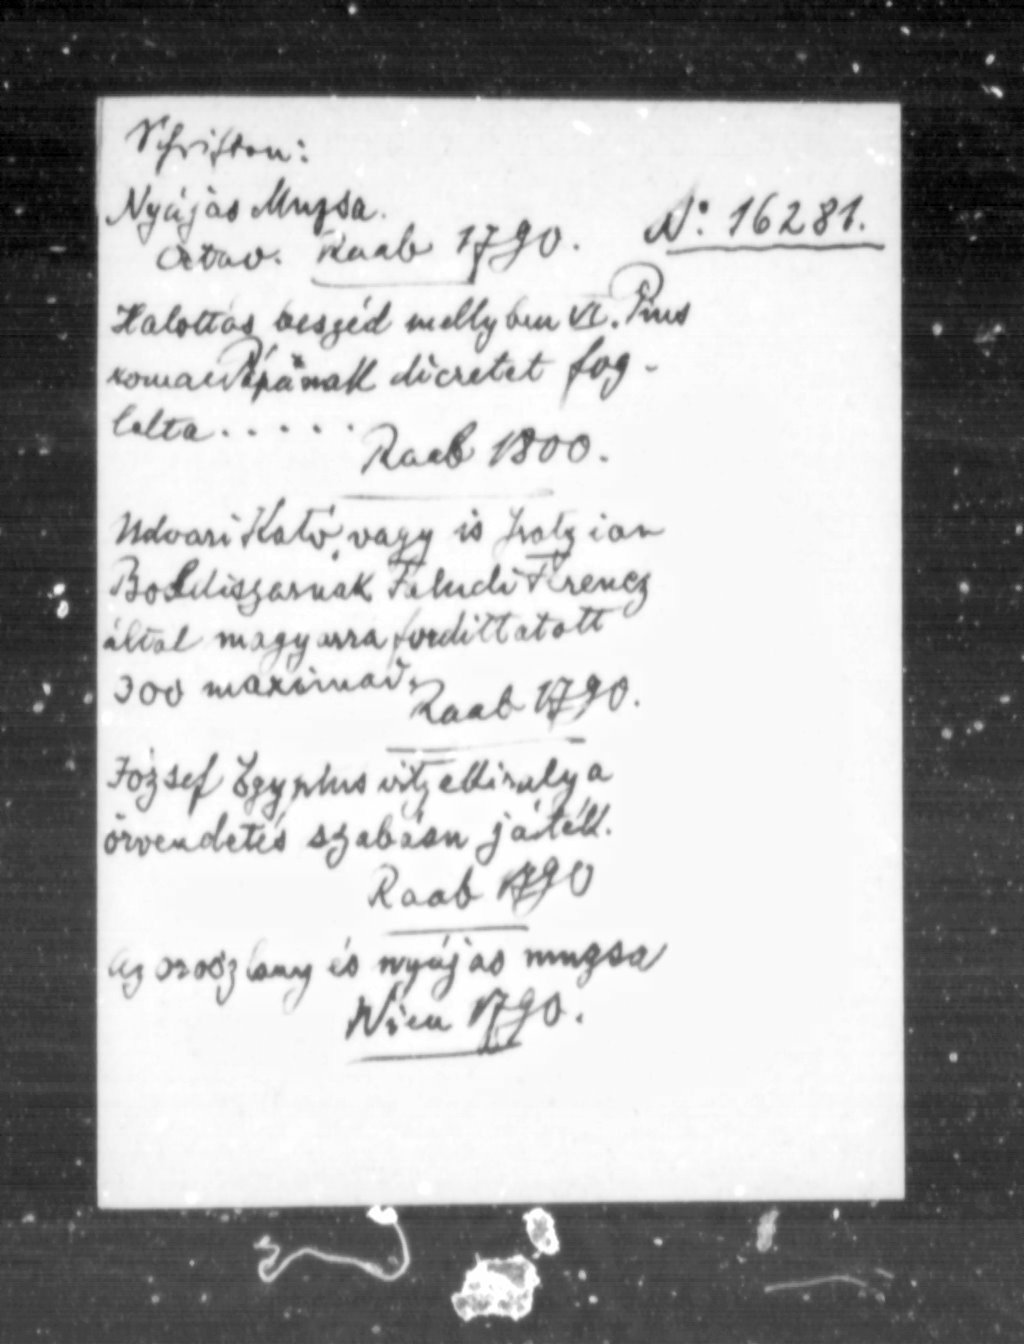 Schriften:
Nyájas Muzsa.
Nº 16281.
Octav. Raab 1790.
Halottas beszéd mellyben VI. Pius
romai Pápának dicretet fog-
lalta . . . . .
Raab 1800.
Udvari Kato, vagy is Gratzian
Boldiszarnak Faludi Ferencz
által magyarra fordittatott
300 maximai.
Raab 1790.
József Egyptus vitzekiralya
örvendetés szabásu játék.
Raab 1790
Az oroszlany és nyájas muzsa
Wien 1790.